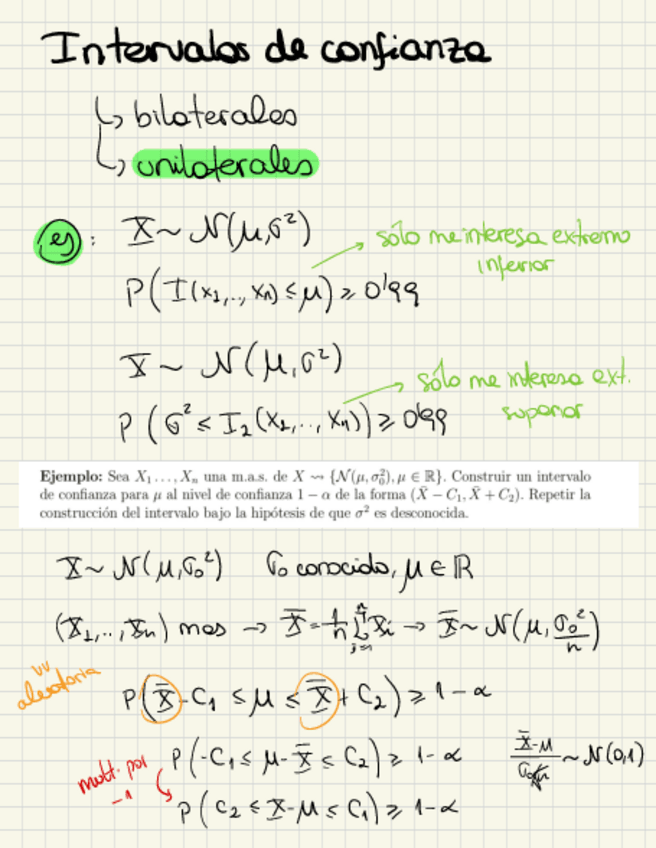 Intervalos de confianza
↳ bilaterales
↳ unilaterales
ej : X ~ N(μ, σ²)
sólo me interesa extremo inferior
P(I(x₁,.., xₙ) ≤ μ) ≥ 0'99
X ~ N(μ, σ²)
sólo me interesa ext. superior
P(σ² ≤ I₂(x₁,.., xₙ)) ≥ 0'99
Ejemplo: Sea X₁ . . . , Xₙ una m.a.s. de X ⇝ {N(μ, σ₀²), μ ∈ ℝ}. Construir un intervalo
de confianza para μ al nivel de confianza 1 − α de la forma (X̄ − C₁, X̄ + C₂). Repetir la
construcción del intervalo bajo la hipótesis de que σ² es desconocida.
X ~ N(μ, σ₀²) σ₀ conocido, μ ∈ ℝ
(X₁,.., Xₙ) mas → X̄ = 1/n Σ Xᵢ → X̄ ~ N(μ, σ₀²/n)
vv aleatoria
P(X̄ - C₁ ≤ μ ≤ X̄ + C₂) ≥ 1 - α
P(-C₁ ≤ μ - X̄ ≤ C₂) ≥ 1 - α
X̄-μ / σ₀/√n ~ N(0,1)
mult. por -1
P(C₂ ≤ X - μ ≤ C₁) ≥ 1 - α